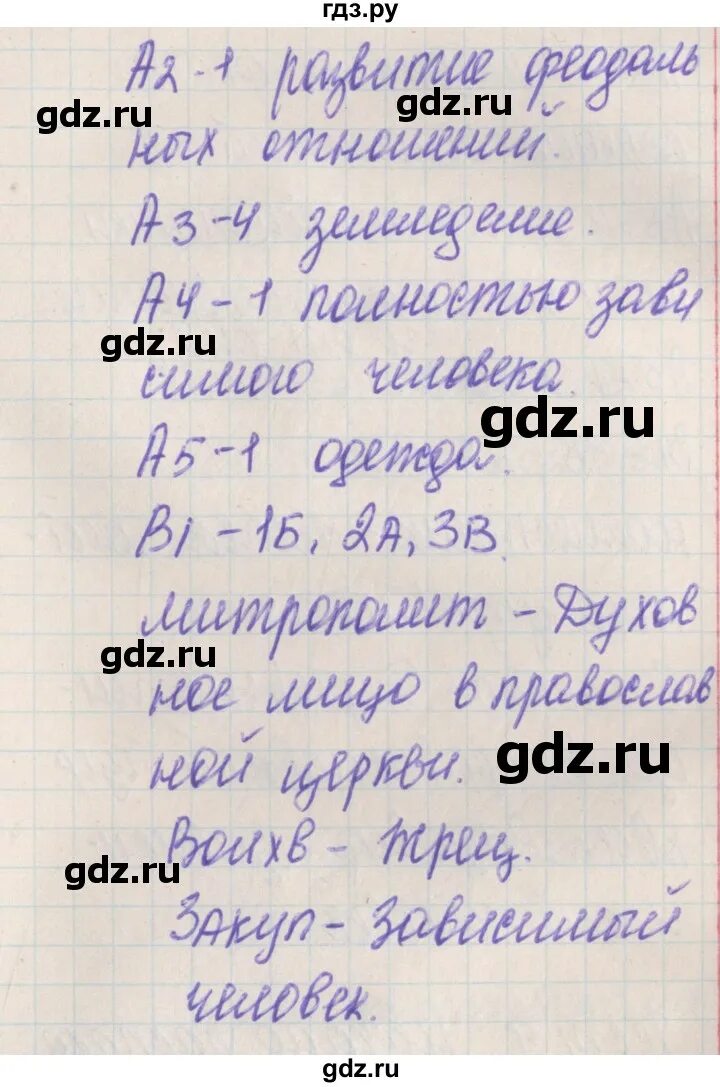 гдз.ру
А2-1 развитие феодаль
gdz.ru gdz.ru
ных отношений.
А3-4 земледелие.
А4-1 полностью зави
gdz.ru
симого человека.
gdz.ru
А5-1 одежда.
В1-1Б, 2А, 3В.
митрополит - Духов
gdz.ru
ное лицо в православ
gdz.ru
ной церкви.
Волхв - жрец.
gdz.ru
Закуп - Зависимый
человек.
gdz.ru